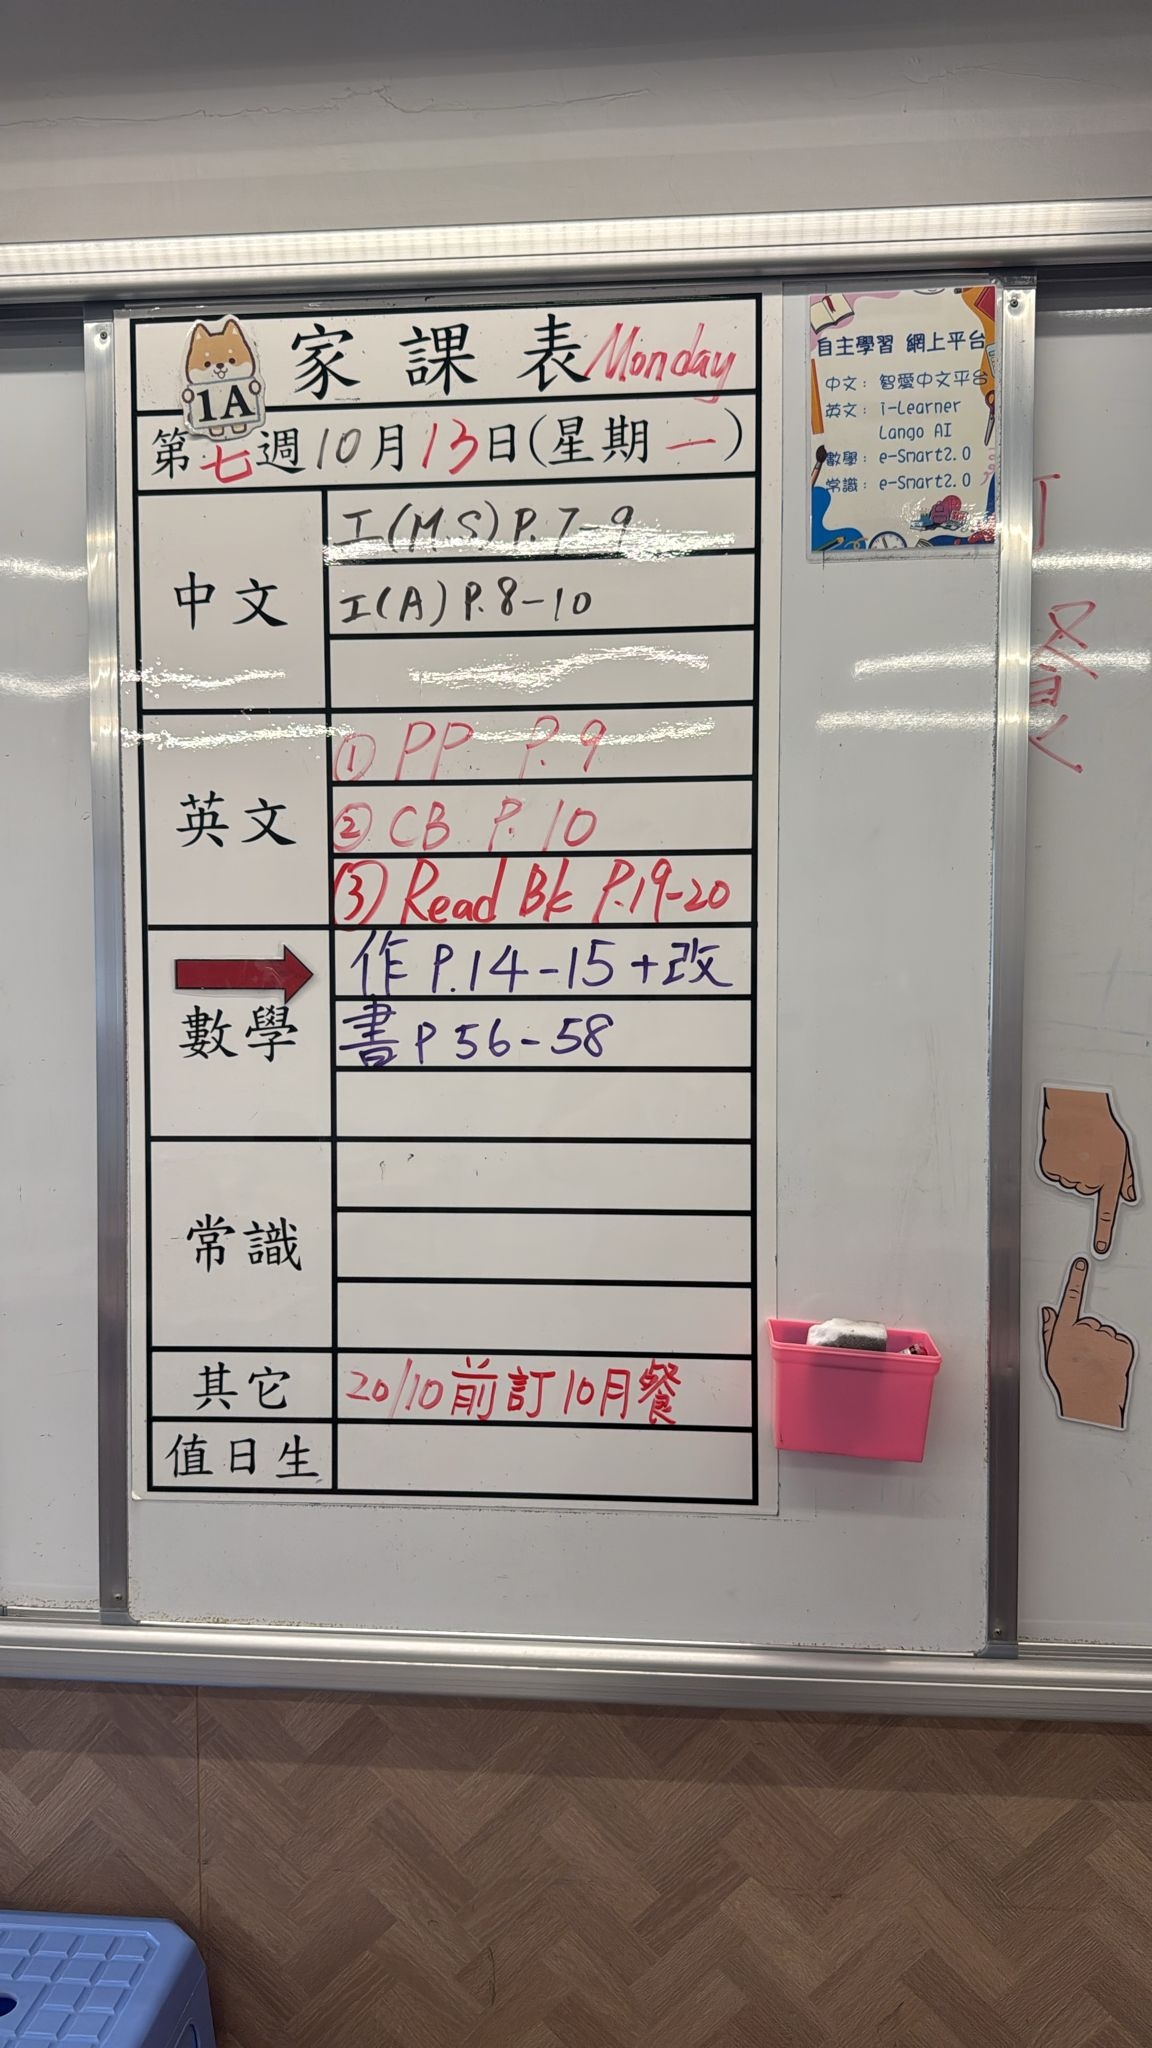 家課表 Monday
1A
第七週10月13日(星期一)
中文
工(MS)P.7-9
工(A)P.8-10
英文
① PP P.9
② CB P.10
③ Read Bk P.19-20
數學
作 P.14-15+改
書 P 56-58
常識
其它
20/10前訂10月餐
值日生
自主學習 網上平台
中文：智愛中文平台
英文：i-Learner
Lango AI
數學：e-Smart2.0
常識：e-Smart2.0
訂
餐